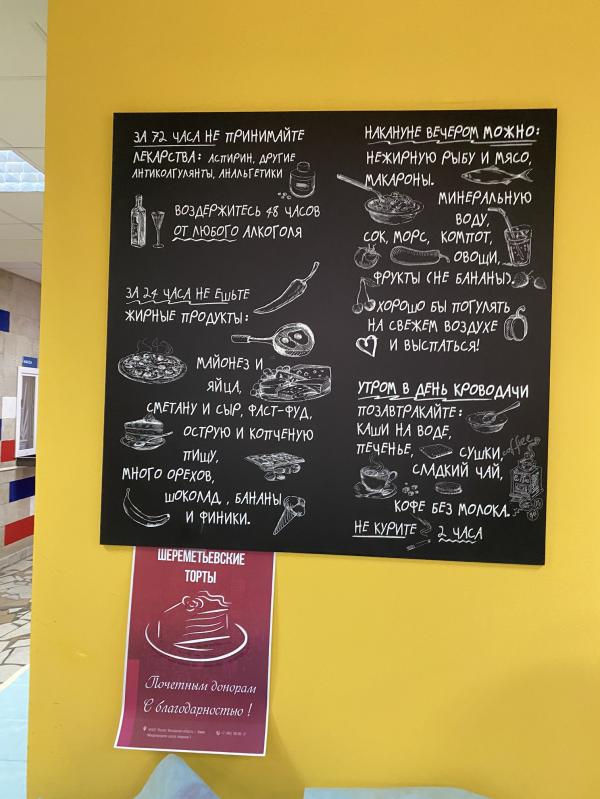 ЗА 72 ЧАСА НЕ ПРИНИМАЙТЕ
ЛЕКАРСТВА: АСПИРИН, ДРУГИЕ
АНТИКОАГУЛЯНТЫ, АНАЛЬГЕТИКИ
ВОЗДЕРЖИТЕСЬ 48 ЧАСОВ
ОТ ЛЮБОГО АЛКОГОЛЯ
ЗА 24 ЧАСА НЕ ЕШЬТЕ
ЖИРНЫЕ ПРОДУКТЫ:
МАЙОНЕЗ И
ЯЙЦА,
СМЕТАНУ И СЫР, ФАСТ-ФУД,
ОСТРУЮ И КОПЧЕНУЮ
ПИЩУ,
МНОГО ОРЕХОВ,
ШОКОЛАД , БАНАНЫ
И ФИНИКИ.
НАКАНУНЕ ВЕЧЕРОМ МОЖНО:
НЕЖИРНУЮ РЫБУ И МЯСО,
МАКАРОНЫ.
МИНЕРАЛЬНУЮ
ВОДУ,
СОК, МОРС, КОМПОТ,
ОВОЩИ,
ФРУКТЫ (НЕ БАНАНЫ).
ХОРОШО БЫ ПОГУЛЯТЬ
НА СВЕЖЕМ ВОЗДУХЕ
И ВЫСПАТЬСЯ!
УТРОМ В ДЕНЬ КРОВОДАЧИ
ПОЗАВТРАКАЙТЕ:
КАШИ НА ВОДЕ,
ПЕЧЕНЬЕ, СУШКИ,
СЛАДКИЙ ЧАЙ,
coffee
КОФЕ БЕЗ МОЛОКА.
НЕ КУРИТЕ 2 ЧАСА
ШЕРЕМЕТЬЕВСКИЕ
ТОРТЫ
Почетным донорам
С благодарностью !